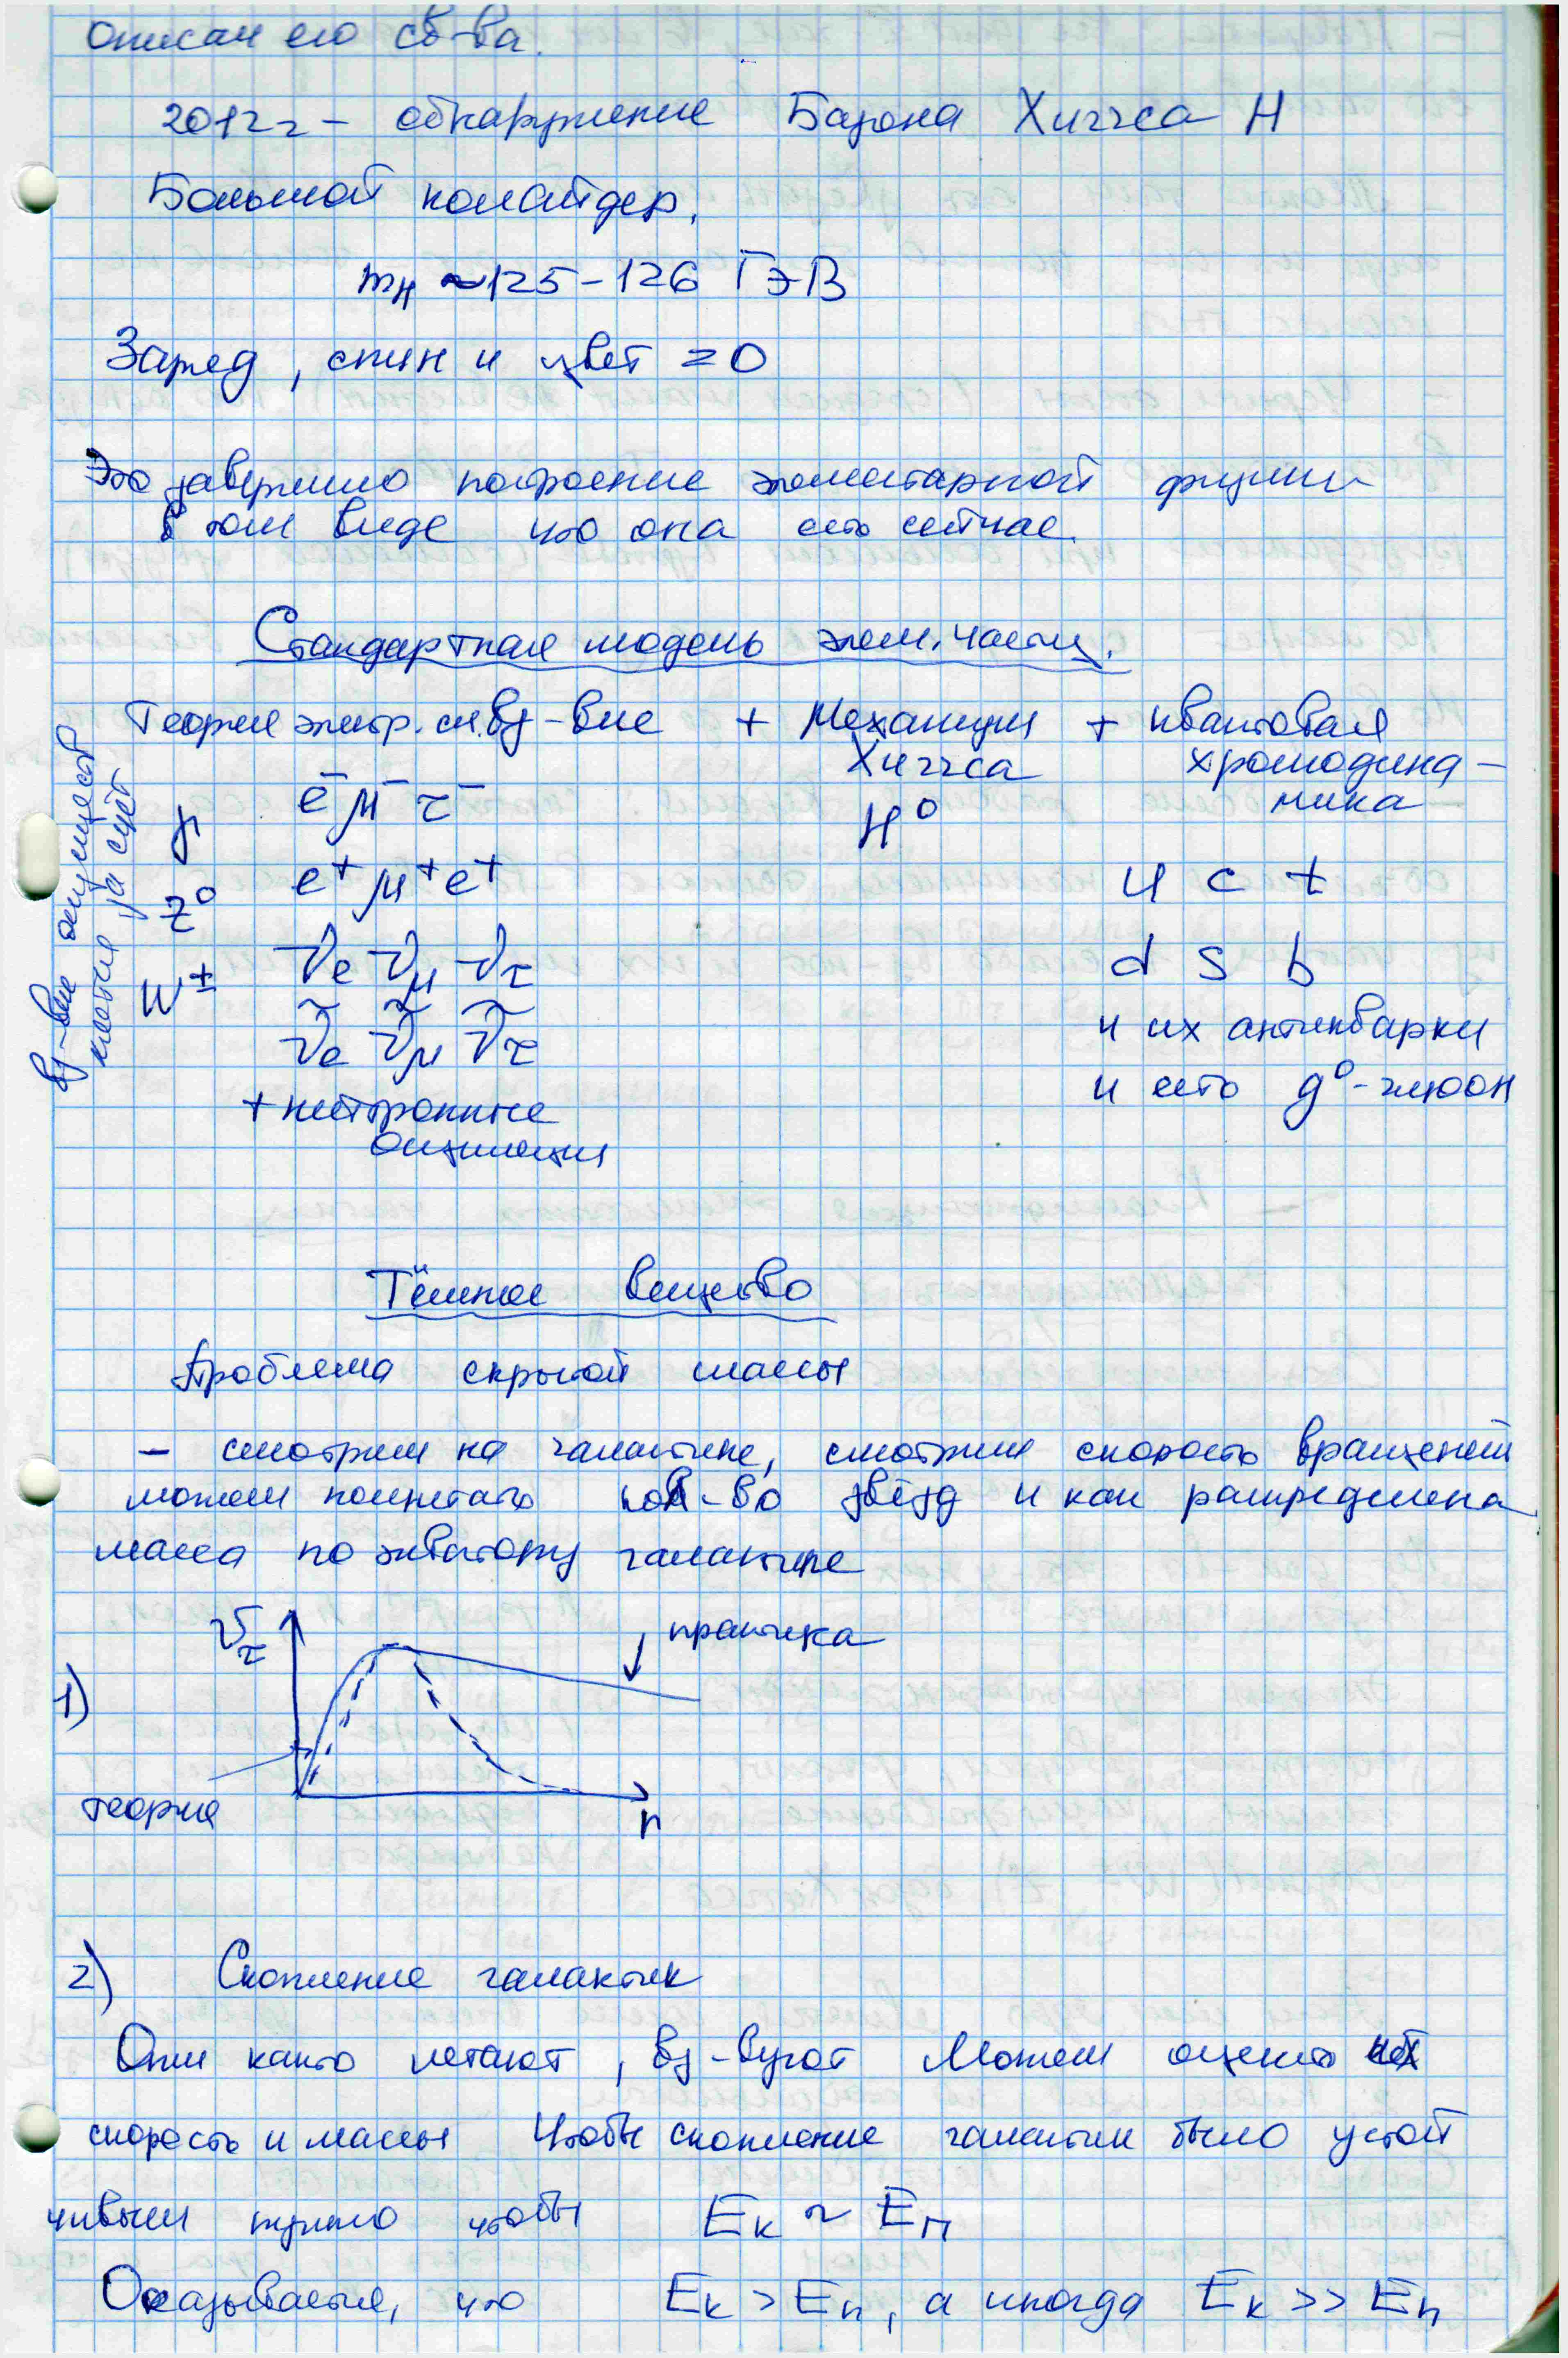 Описан его св-ва.
2012г - обнаружение Базона Хиггса H
Большой колайдер.
m_H ~ 125-126 ГэВ
Заряд, спин и цвет = 0
Это завершило построение элементарной физики
в том виде что она есть сейчас.
Стандартная модель элем. частиц.
Теория электр. сл. вз-вие + Механизм + квантовая
Хиггса хромодина-
мика
вз-вие осуществ
ляется за счёт
γ e⁻ μ⁻ τ⁻ H⁰
Z⁰ e⁺ μ⁺ e⁺ u c t
W± ν_e ν_μ ν_τ d s b
ν̃_e ν̃_μ ν̃_τ и их антикварки
+ нейтронные и есть g⁰-глюон
осциляции
Тёмное вещество
Проблема скрытой массы
- смотрим на галактике, смотрим скорость вращений
можем посчитать кол-во звёзд и как распределена
масса по экватору галактике
1)
v_τ
практика
теория
r
2) Скопление галактик
Они както летают, вз-вуют Можем оценить их
скорость и массы Чтобы скопление галактик было устой
чивым нужно чтобы E_к ~ E_п
Оказывается, что E_к > E_п, а иногда E_к >> E_п